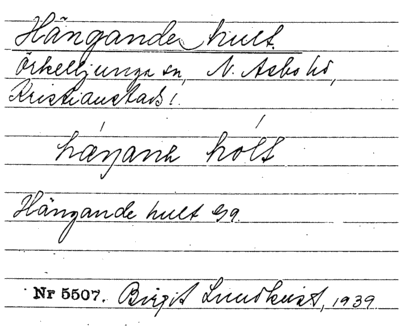 Hängande hult.
Örkelljunga sn, N. Åsbo hd,
Kristianstads l.
hæŋanə hólt
Hängande hult Gg.
Nr 5507. Birgit Lundkvist, 1939.